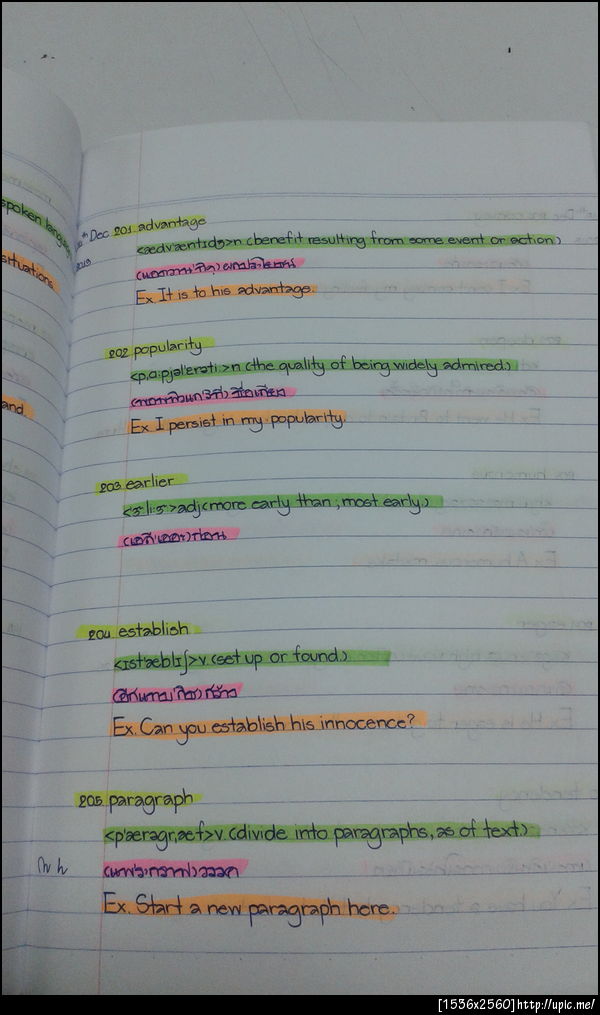 spoken language
situations
and
th Dec 201 advantage
<aedvaentıdʒ>n (benefit resulting from some event or action)
ผลประโยชน์
Ex. It is to his advantage.
202 popularity
<p,a:pjəl'erəti:>n (the quality of being widely admired.)
ชื่อเสียง
Ex I persist in my popularity.
203 earlier
adj(more early than ; most early)
ก่อน
204 establish
<ıst'aeblıʃ>v.(set up or found.)
สร้าง
Ex. Can you establish his innocence?
205 paragraph
<p'aeragr,aef>v.(divide into paragraphs, as of text.)
วรรค
Ex. Start a new paragraph here.
[1536x2560]http://upic.me/